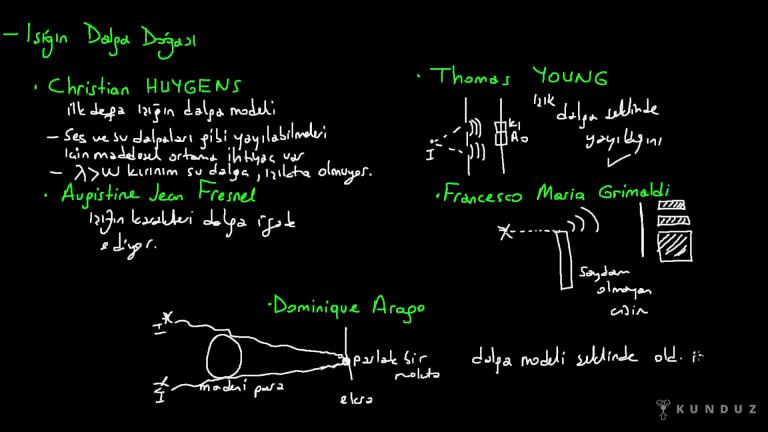 - Işığın Dalga Doğası
· Christian HUYGENS
ilk defa ışığın dalga modeli
- Ses ve su dalgaları gibi yayılabilmeleri
için maddesel ortama ihtiyaç var
- λ>W kırınım su dalga, ışıkta olmuyor.
· Augistine Jean Fresnel
ışığın karakteri dalga ifade
ediyor.
· Thomas YOUNG
ışık dalga şeklinde
yayıldığını
I
K1
A0
· Francesco Maria Grimaldi
Saydam
olmayan
cisim
· Dominique Arago
I
I
madeni para
parlak bir
nokta
ekra
dalga modeli şeklinde old. i
KUNDUZ